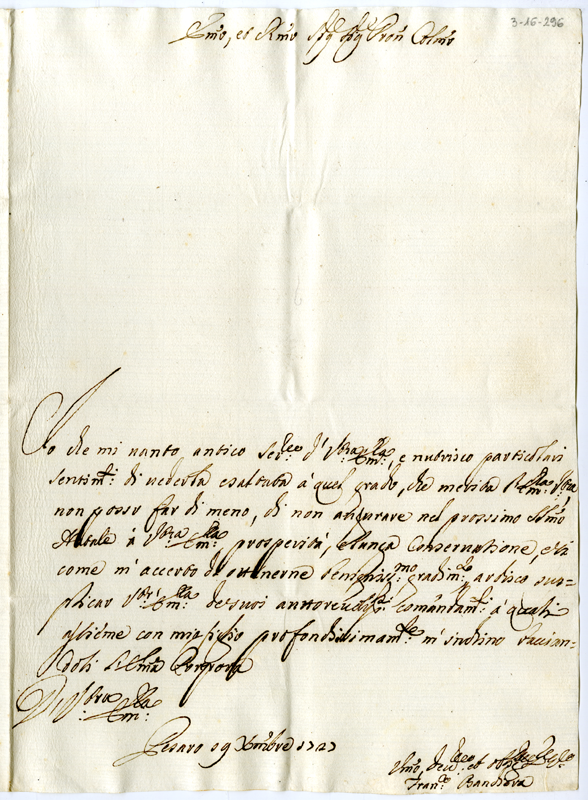 3-16-296
Em̃o, et R̃mo Sig.r Sig.r Prõn Colm̃o
Io che mi vanto, antico Ser.re d'V'ra Em.za, e nutrisco particolari
sentim.ti di vederla esaltata à quel grado, che merita l'Em.za V'ra,
non posso far di meno, di non augurare nel prossimo SS.mo
Natale à V'ra Em.za prosperità, e lunga Conservatione, e si
come m'accerto di ottenerne benignis.mo gradim.to ardisco sup=
plicar V'ra Em.za de suoi auttorevoli comandam.ti à quali
assieme con mio figlio profondissimam.te m'inchino bacian=
doli la Porpora
Di V'ra Em.za
Pesaro 19 Xmbre 1727
Fran.co Bandiera